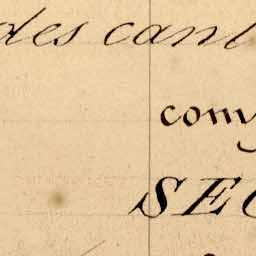 des cant
com
SEC